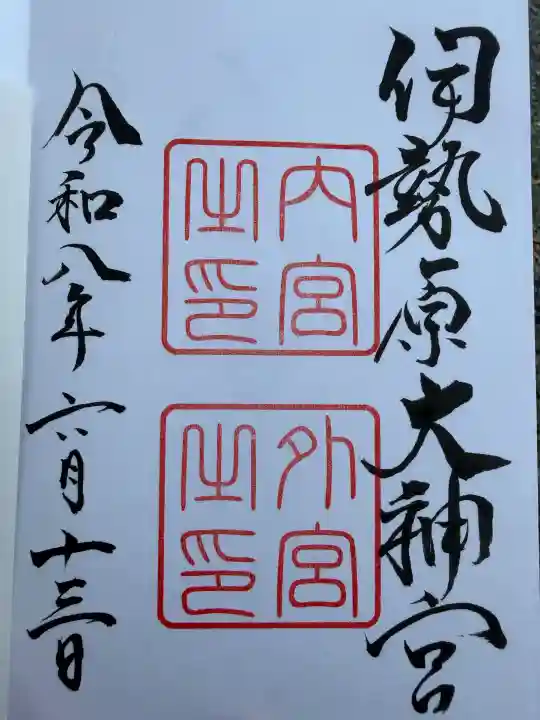 伊勢原大神宮
内宮
之印
外宮
之印
令和八年六月十三日